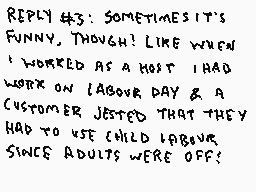 REPLY #3: SOMETIMES IT'S
FUNNY, THOUGH! LIKE WHEN
I WORKED AS A HOST I HAD
WORK ON LABOUR DAY & A
CUSTOMER JESTED THAT THEY
HAD TO USE CHILD LABOUR
SINCE ADULTS WERE OFF!